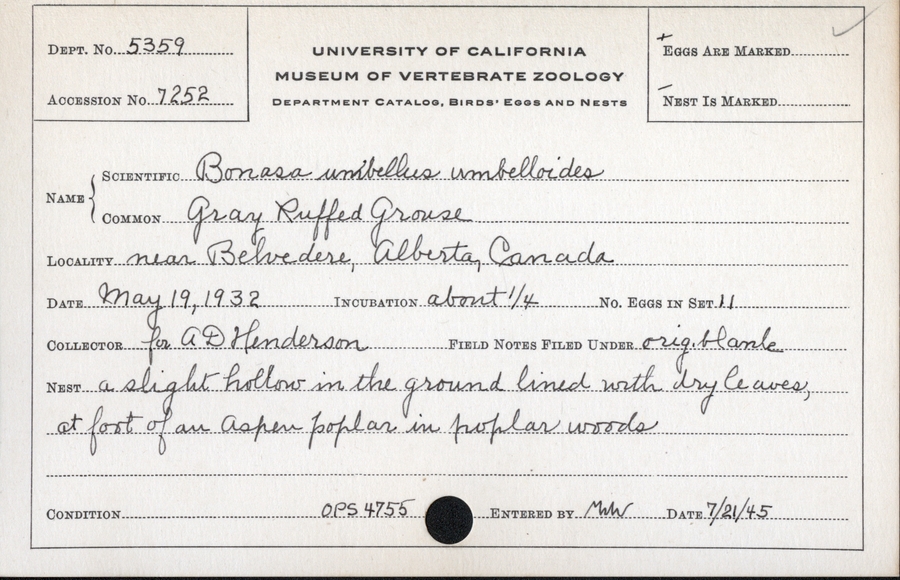 DEPT. No. 5359
ACCESSION No. 7252
UNIVERSITY OF CALIFORNIA
MUSEUM OF VERTEBRATE ZOOLOGY
DEPARTMENT CATALOG, BIRDS' EGGS AND NESTS
+ EGGS ARE MARKED
- NEST IS MARKED
NAME { SCIENTIFIC Bonasa umbellus umbelloides
COMMON Gray Ruffed Grouse
LOCALITY near Belvedere, Alberta, Canada
DATE May 19, 1932 INCUBATION about 1/4 No. EGGS IN SET 11
COLLECTOR for A D Henderson FIELD NOTES FILED UNDER orig. blank
NEST a slight hollow in the ground lined with dry leaves,
at foot of an Aspen poplar in poplar woods
CONDITION OPS 4755 ENTERED BY DATE 7/21/45